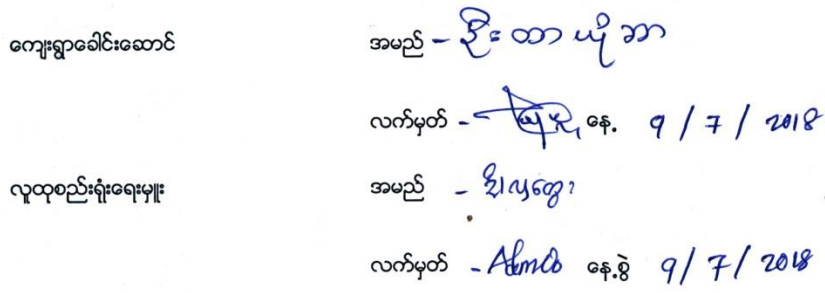 ကျေးရွာခေါင်းဆောင် အမည် - ဦးတာယိုဘာ
လက်မှတ် - နေ့. 9 / 7 / 2018
လူထုစည်းရုံးရေးမှူး အမည် -
လက်မှတ် - နေ့.စွဲ 9 / 7 / 2018